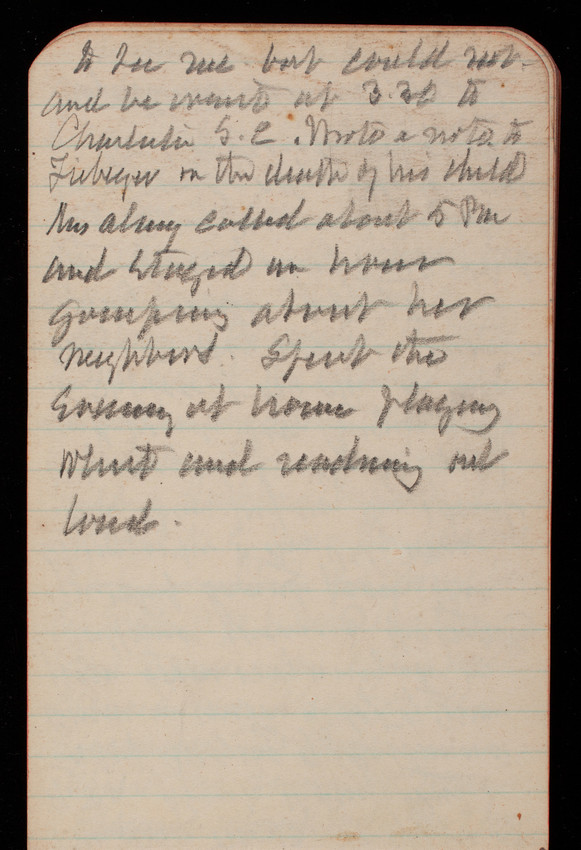 to see me but could not
and he went at 3.30 to
Charleston S.C. Wrote a note to
Fiebeger on the death of his child
Mrs called about 5 Pm
and stayed an hour
gossiping about her
neighbors. Spent the
Evening at home playing
Whist and reading out
loud.